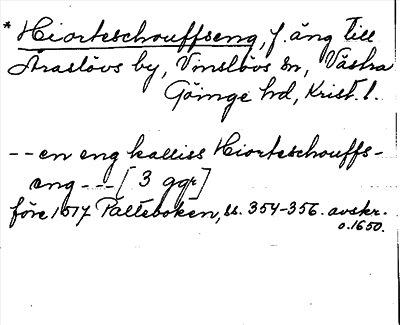 * Hiorteschouffseng, f. äng till
Araslövs by, Vinslövs sn, Västra
Göinge hd, Krist. l.
-- en eng kalliss Hiorteschouffs-
eng --- [3 ggr]
före 1517 Palteboken, ss. 354-356. avskr.
o. 1650.